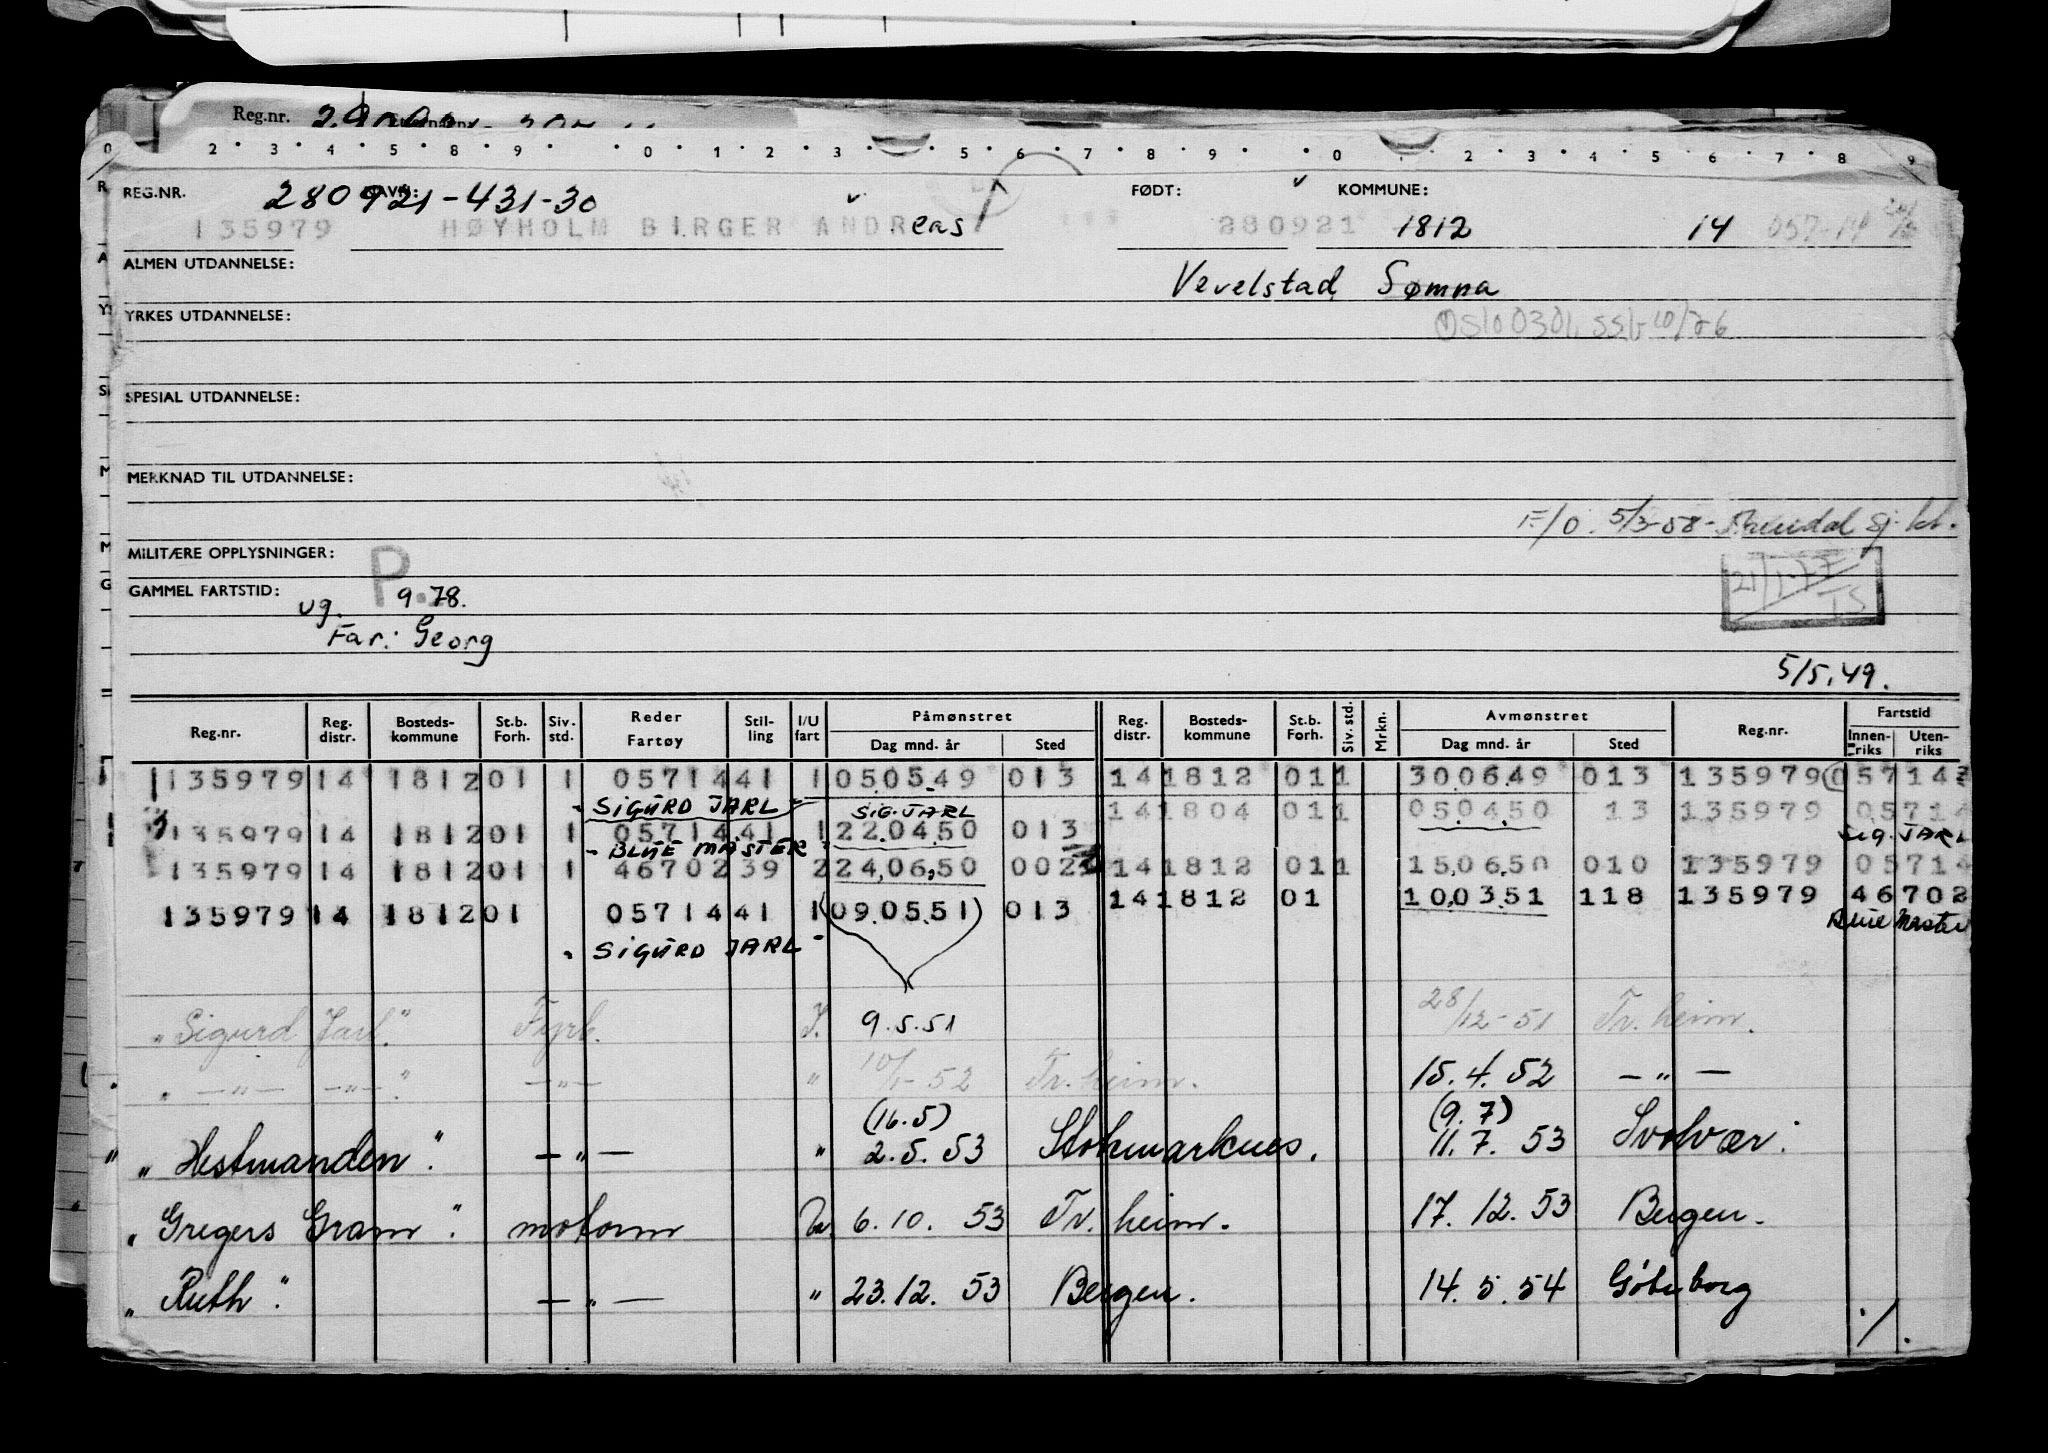 Reg.nr.
2 3 4 5 8 9 0 1 2 3 5 6 7 8 9 0 1 2 3 4 5 6 7 8 9
REG.NR. 280921-431-30 NAVN: FØDT: KOMMUNE:
135979 HØYHOLM BIRGER ANDReas 280921 1812 14 057-14
ALMEN UTDANNELSE: Vevelstad, Sømna
YRKES UTDANNELSE: Oslo 0301, ssb 10/76
SPESIAL UTDANNELSE:
MERKNAD TIL UTDANNELSE:
F/O. 5/3-58
MILITÆRE OPPLYSNINGER: P
GAMMEL FARTSTID: ug. 9.78. 21/1-77 TS
Far: Georg
5/5.49.
Reg.nr. Reg. distr. Bosteds-kommune St.b. Forh. Siv. std. Reder Fartøy Stil-ling I/U fart Påmønstret Dag mnd. år Sted Reg. distr. Bosteds-kommune St.b. Forh. Siv. std. Mrkn. Avmønstret Dag mnd. år Sted Reg.nr. Fartstid Innen-riks Uten-riks
135979 14 1812 01 1 05714 41 1 050549 013 14 1812 01 1 300649 013 135979 05714
SIGURD JARL SIG. JARL 14 1804 01 1 050450 13 135979 05714
135979 14 1812 01 1 05714 41 1 220450 013 Sig. JARL
BLUE MASTER
135979 14 1812 01 1 46702 39 2 240650 002 14 1812 01 1 150650 010 135979 05714
135979 14 1812 01 05714 41 1 (090551) 013 14 1812 01 100351 118 135979 46702
Blue Master
" SIGURD JARL "
"Sigurd Jarl." Fyrb. I. 9.5.51 28/12-51 Tr.heim.
" —"— —"—" —"— " 10/1-52 Tr.heim. 15.4.52 —"—
(16.5) (9.7)
"Hestmanden". —"— " 2.5.53 Stokmarknes. 11.7.53 Svolvær.
"Gregers Gram". motorm U. 6.10.53 Tr.heim. 17.12.53 Bergen.
"Ruth". —"— " 23.12.53 Bergen. 14.5.54 Göteborg
./.